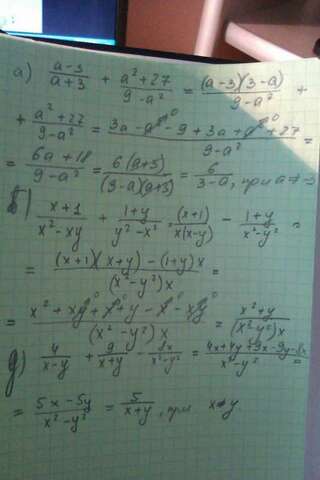 а) (a-3)/(a+3) + (a²+27)/(9-a²) = ((a-3)(3-a))/(9-a²) +
+ (a²+27)/(9-a²) = (3a-a²-9+3a+a²+27)/(9-a²) =
= (6a+18)/(9-a²) = (6(a+3))/((3-a)(a+3)) = 6/(3-a), при a≠-3
б) (x+1)/(x²-xy) + (1+y)/(y²-x²) = (x+1)/(x(x-y)) - (1+y)/(x²-y²) =
= ((x+1)(x+y)-(1+y)x)/((x²-y²)x) =
= (x²+xy+x+y-x-xy)/((x²-y²)x) = (x²+y)/((x²-y²)x)
д) 4/(x-y) + 9/(x+y) - 8x/(x²-y²) = (4x+4y+9x-9y-8x)/(x²-y²) =
= (5x-5y)/(x²-y²) = 5/(x+y), при x≠y